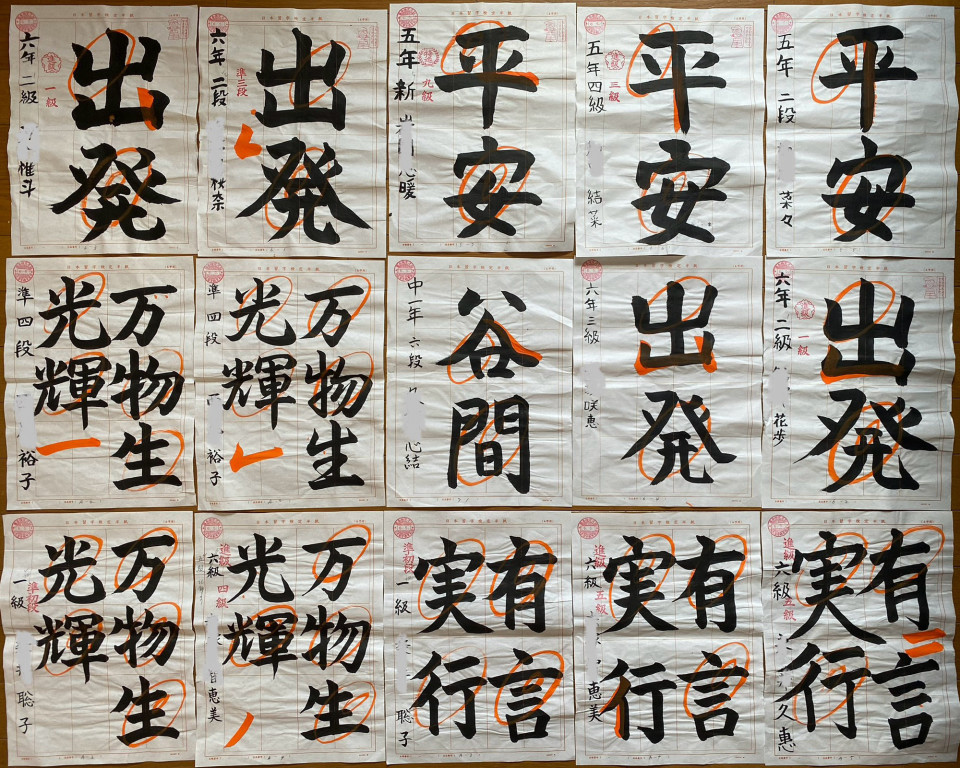 出発
一級
六年 二級 惟斗
出発
準三段
六年 二段 秋奈
平安
九級
五年 新 心暖
平安
三級
五年 四級 結菜
平安
五年 二段 菜々
万物生
光輝
準四段 裕子
万物生
光輝
準四段 裕子
谷間
中一年 六段 心結
出発
六年 三級 咲恵
出発
一級
六年 二級 花歩
万物生
光輝
準初段
一級 聡子
万物生
光輝
進級 四級
六級 恵美
有言
実行
準初段
一級 聡子
有言
実行
進級 五級
六級 恵美
有言
実行
進級 五級
六級 久恵